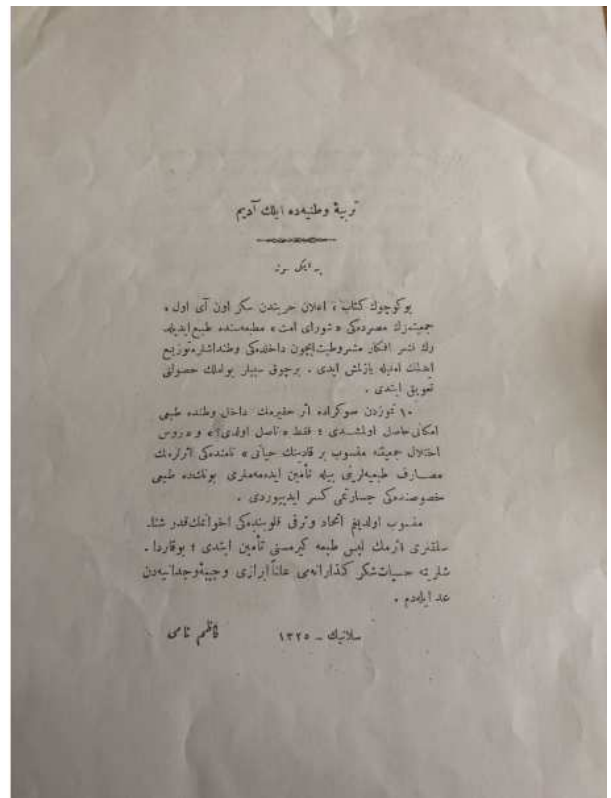 تربیهٔ وطنیه‌ده ایلك آدیم
بر ایكی سوز
بوكوچوك كتاب ، اعلان حریتدن سكز اون آی اول ،
جمعیتمزك مصرده‌كی « شورای امت » مطبعه‌سنده طبع ایدیله
رك نشر افكار مشروطیت ایچون داخلده‌كی وطنداشلره توزیع
ایدلمك املیله یازلمش ایدی . برچوق سببلر بو املك حصولنی
تعویق ایتدی .
١٠ تموزدن صوكراده اثر حقیرمك داخل وطنده طبعی
امكانی حاصل اولمشدی ؛ فقط « ناصل اولدی؟ » و « روس
اختلال جمعیتنه منسوب بر قادینك حیاتی » نامنده‌كی اثرلرمك
مصارف طبعیه‌لرینی بیله تأمین ایده‌مه‌ملری بونك‌ده طبعی
خصوصنده‌كی جسارتمی كسر ایدییوردی .
منسوب اولدیغم اتحاد وترقی قلوبنده‌كی اخوانمك قدر شنا-
سلقلری اثرمك لباس طبعه كیرمسنی تأمین ایتدی ؛ بوقاردا-
شلریمه حسیات شكر كذارانه‌می علناً ابرازی وجیبهٔ وجدانیه‌دن
عد ایله‌دم .
سلانیك ـ ١٣٢٥ كاظم نامی